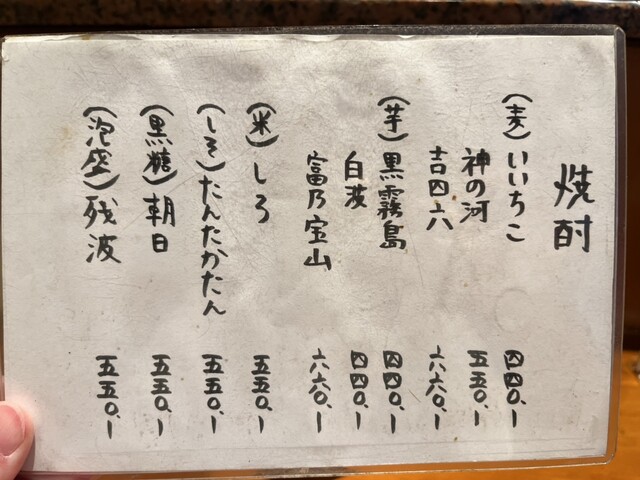 焼酎
(麦)いいちこ 四四〇.ー
神の河 五五〇.ー
吉四六 六六〇.ー
(芋)黒霧島 四四〇.ー
白波 四四〇.ー
富乃宝山 六六〇.ー
(米)しろ 五五〇.ー
(しそ)たんたかたん 五五〇.ー
(黒糖)朝日 五五〇.ー
(泡盛)残波 五五〇.ー